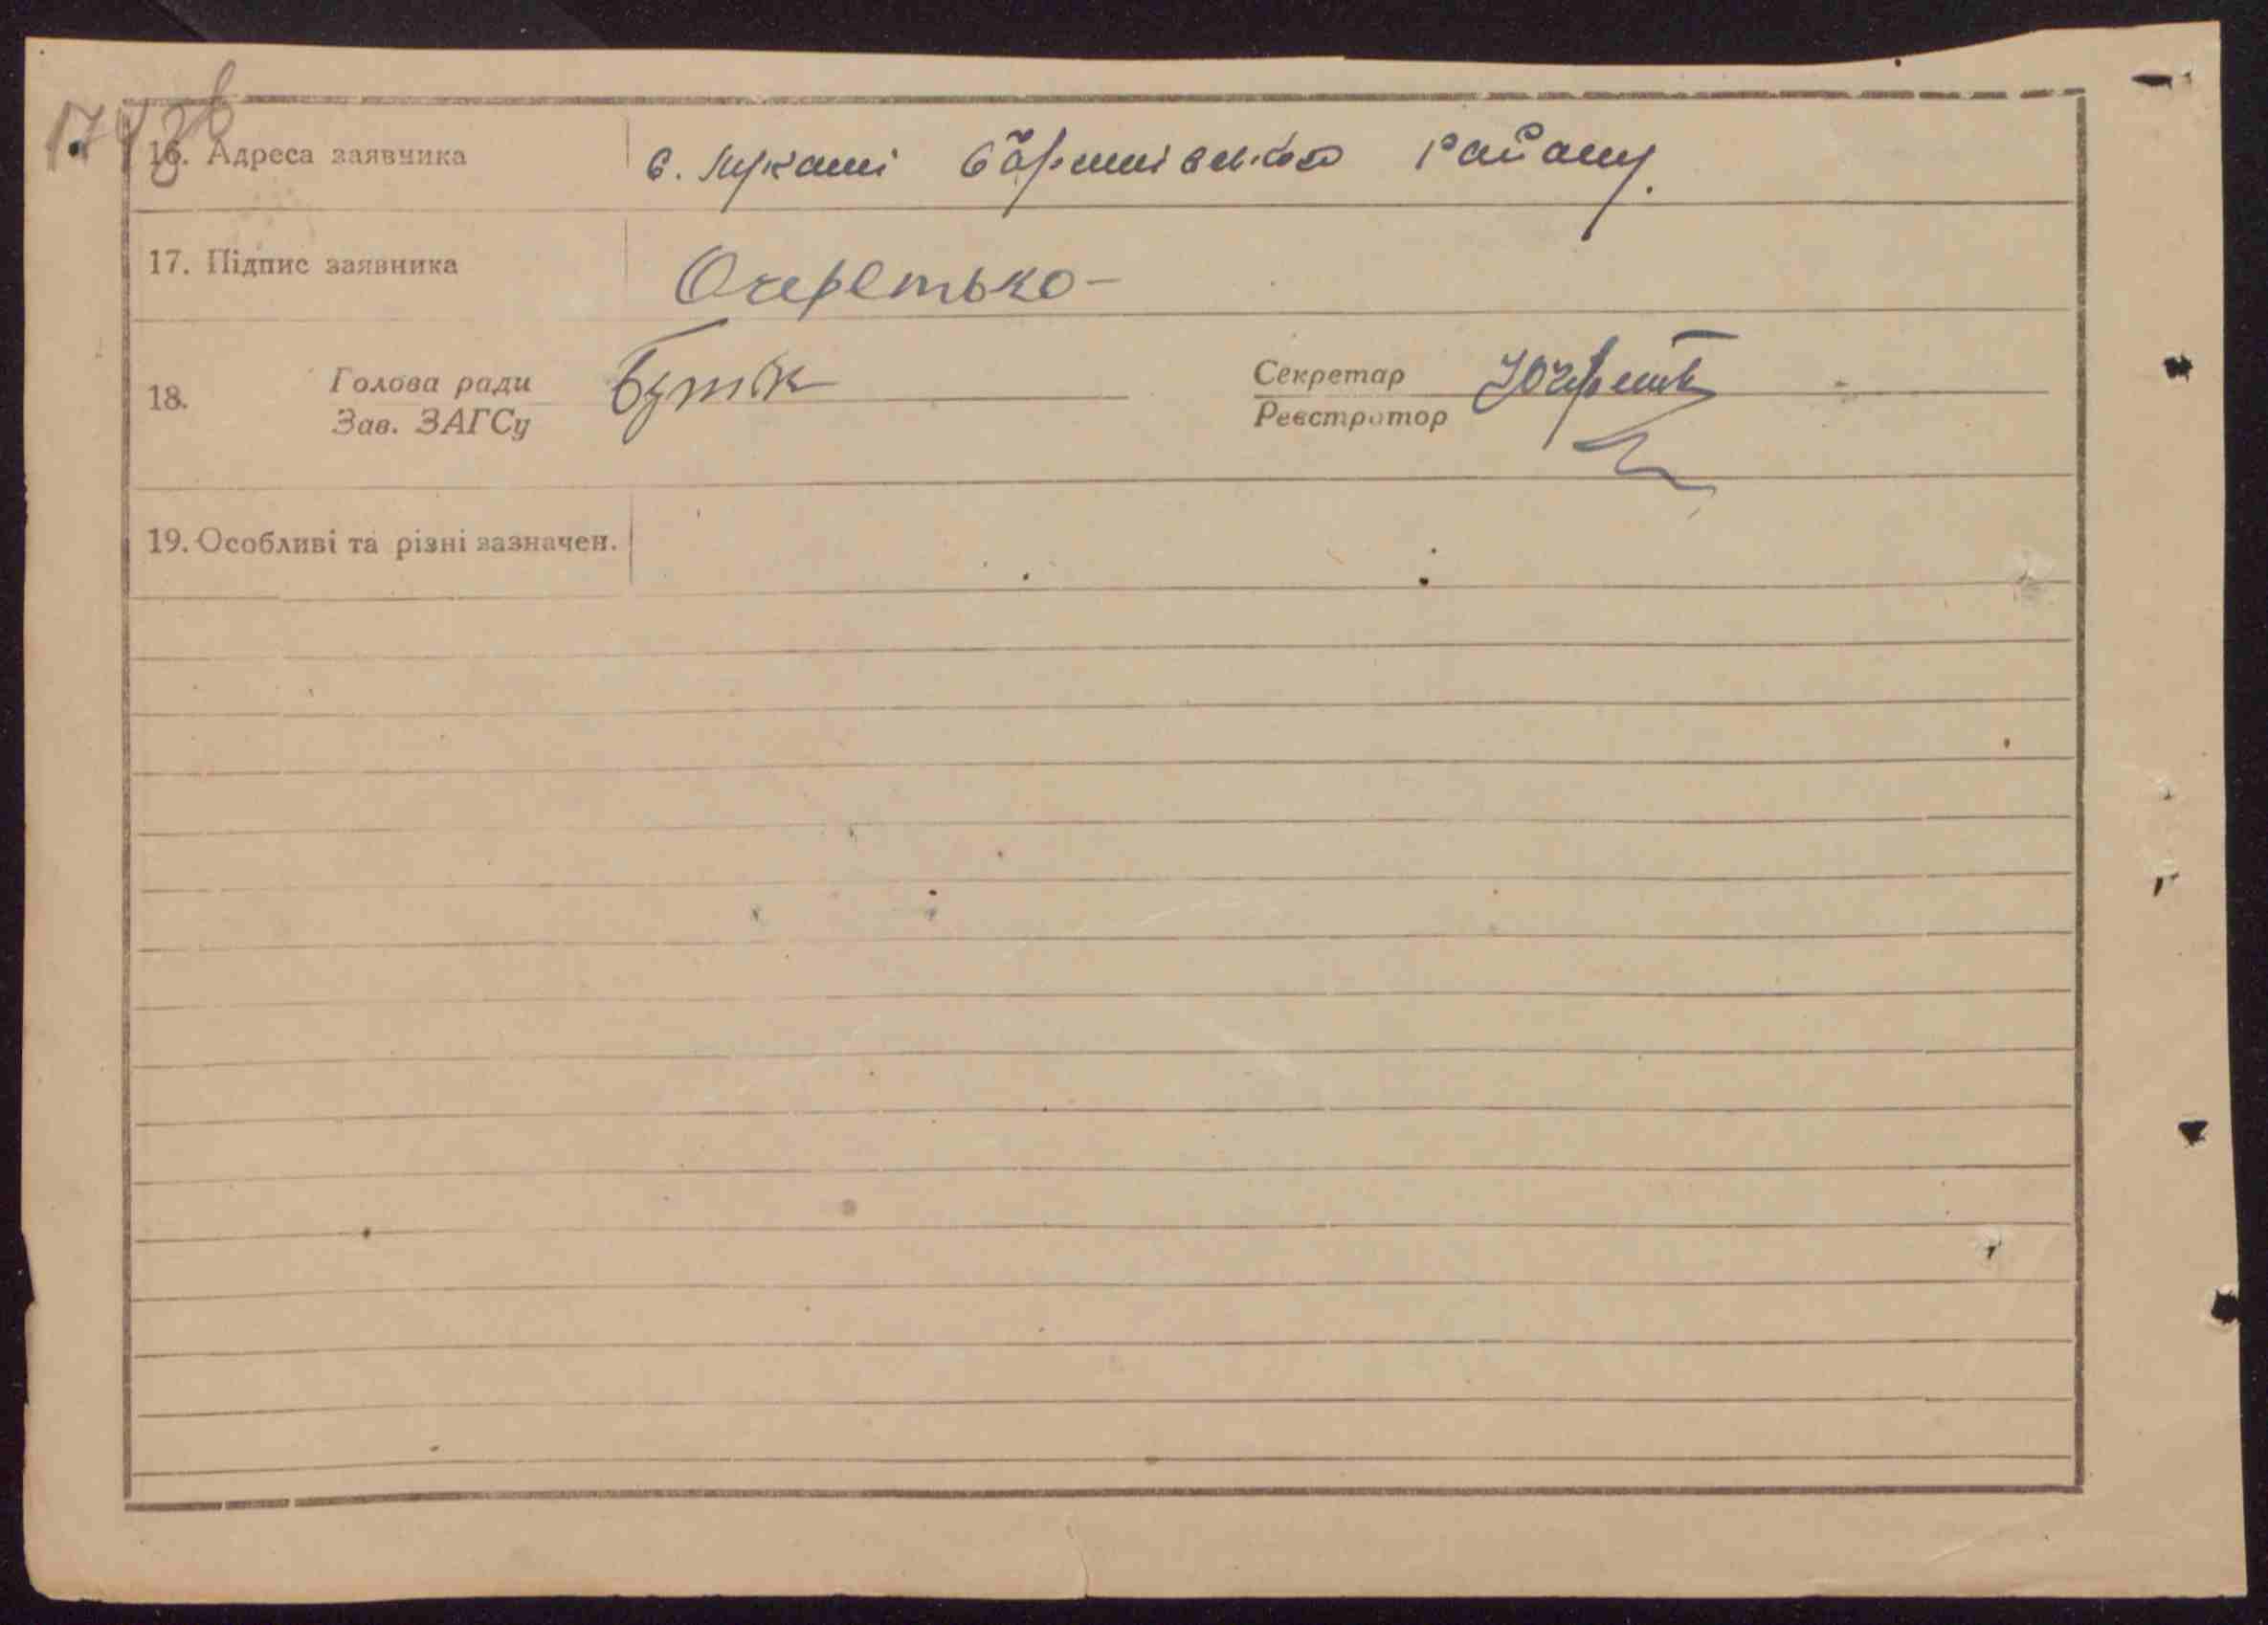 16. Адреса заявника с. Лукаші Баришівського району.
17. Підпис заявника Очеретько-
18. Голова ради Зав. ЗАГСу Бутк Секретар Реєстратор
19. Особливі та різні зазначен.